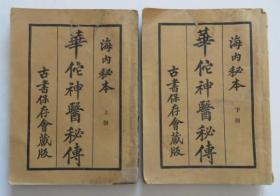 海内秘本
上冊
華佗神醫秘傳
古書保存會藏版
海内秘本
下冊
華佗神醫秘傳
古書保存會藏版